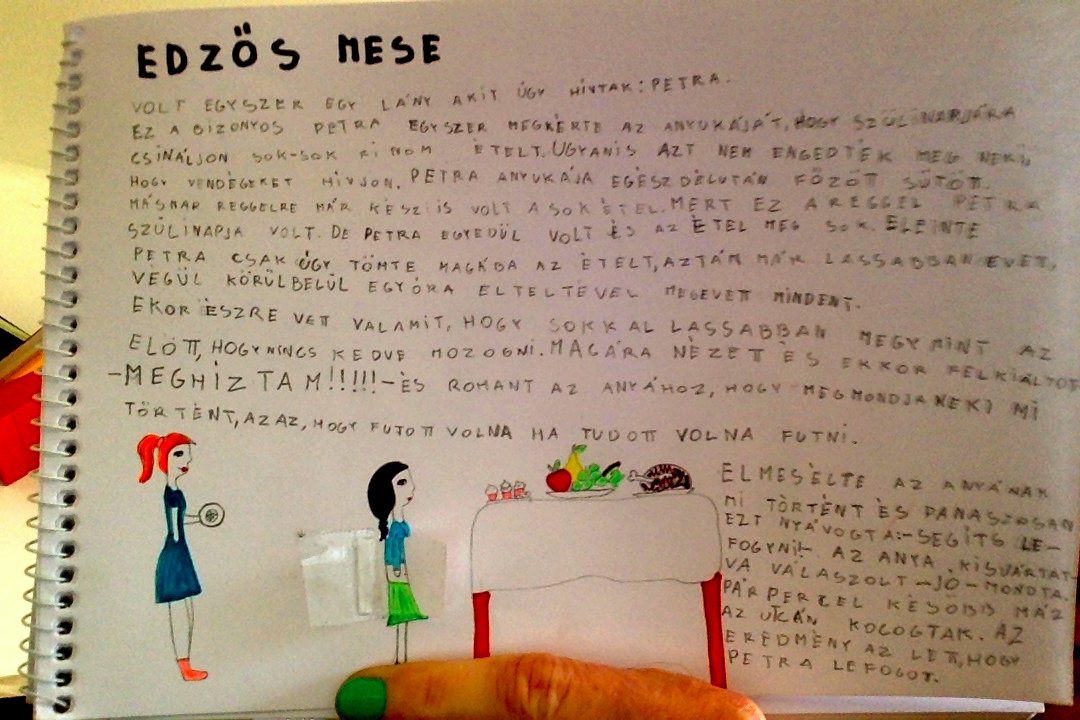 EDZŐS MESE
VOLT EGYSZER EGY LÁNY AKIT ÚGY HIVTAK: PETRA.
EZ A BIZONYOS PETRA EGYSZER MEGKÉRTE AZ ANYUKÁJÁT, HOGY SZÜLINAPJÁRA
CSINÁLJON SOK-SOK FINOM ÉTELT. UGYANIS AZT NEM ENGEDTÉK MEG NEKI,
HOGY VENDÉGEKET HÍVJON. PETRA ANYUKÁJA EGÉSZ DÉLUTÁN FŐZÖTT, SÜTÖTT.
MÁSNAP REGGELRE MÁR KÉSZ IS VOLT A SOK ÉTEL. MERT EZ A REGGEL PETRA
SZÜLINAPJA VOLT. DE PETRA EGYEDÜL VOLT ÉS AZ ÉTEL MEG SOK. ELEINTE
PETRA CSAK ÚGY TÖMTE MAGÁBA AZ ÉTELT, AZTÁN MÁR LASSABBAN EVET,
VÉGÜL KÖRÜLBELÜL EGY ÓRA ELTELTÉVEL MEGEVETT MINDENT.
EKOR ÉSZRE VETT VALAMIT, HOGY SOKKAL LASSABBAN MEGY MINT AZ
ELŐTT, HOGY NINCS KEDVE MOZOGNI. MAGÁRA NÉZET ÉS EKKOR FELKIÁLTOT
-MEGHÍZTAM!!!!!-ÉS ROHANT AZ ANYÁHOZ, HOGY MEGMONDJA NEKI MI
TÖRTÉNT, AZAZ, HOGY FUTOTT VOLNA HA TUDOTT VOLNA FUTNI.
ELMESÉLTE AZ ANYÁNAK
MI TÖRTÉNT ÉS PANASZOSAN
EZT NYÁVOGTA:-SEGÍTS LE-
FOGYNI!- AZ ANYA KISVÁRTAT-
VA VÁLASZOLT -JÓ- MONDTA.
PÁR PERCEL KÉSŐBB MÁR
AZ UTCÁN KOCOGTAK. AZ
EREDMÉNY AZ LETT, HOGY
PETRA LEFOGOT.